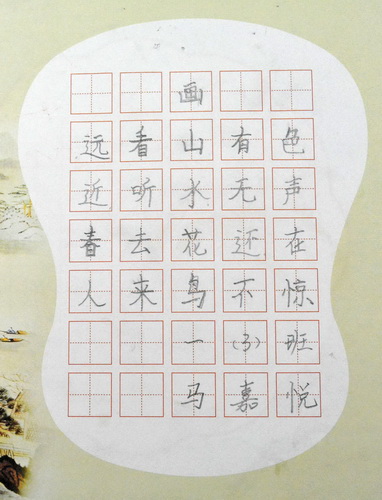 画
远看山有色
近听水无声
春去花还在
人来鸟不惊
一(3)班
马嘉悦